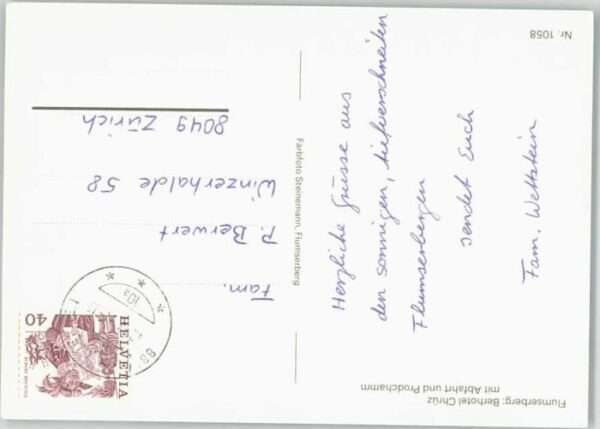 Flumserberg: Berhotel Chrüz
mit Abfahrt und Prodchamm
Nr. 1058
Herzliche Grüsse aus
den sonnigen, tiefverschneiten
Flumserbergen
sendet Euch
Fam. Wettstein
Farbfoto Steinemann, Flumserberg
HELVETIA
40
Fam.
P. Berwert
Winzerhalde 58
8049 Zürich